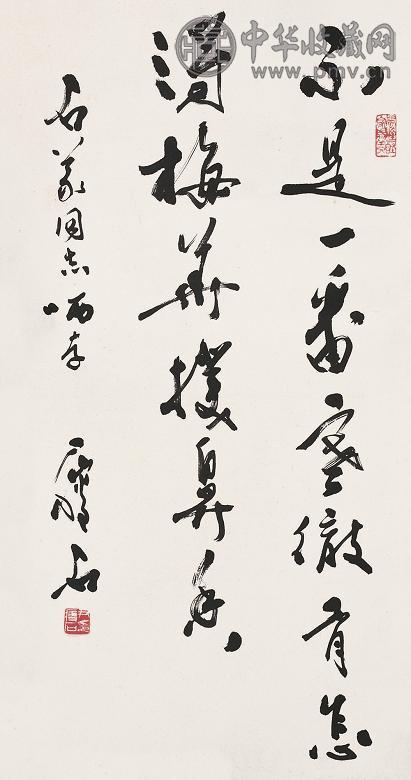 中华收藏网
www.pmv.cn
不是一番寒徹骨怎
得梅華撲鼻香
石 同志哂存
石